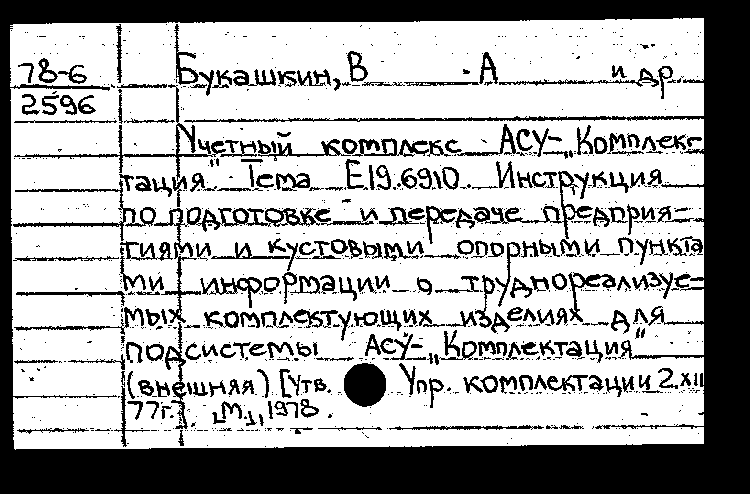 78-6
2596
Букашкин, В. А. и др
Учетный комплекс АСУ-„Комплек-
тация" Тема Е19.6910. Инструкция
по подготовке и передаче предприя-
тиями и кустовыми опорными пункта
ми информации о труднореализуе-
мых комплектующих изделиях для
подсистемы АСУ-„Комплектация"
(внешняя) [Утв. Упр. комплектации 2.XII
77г.]. [М.], 1978.